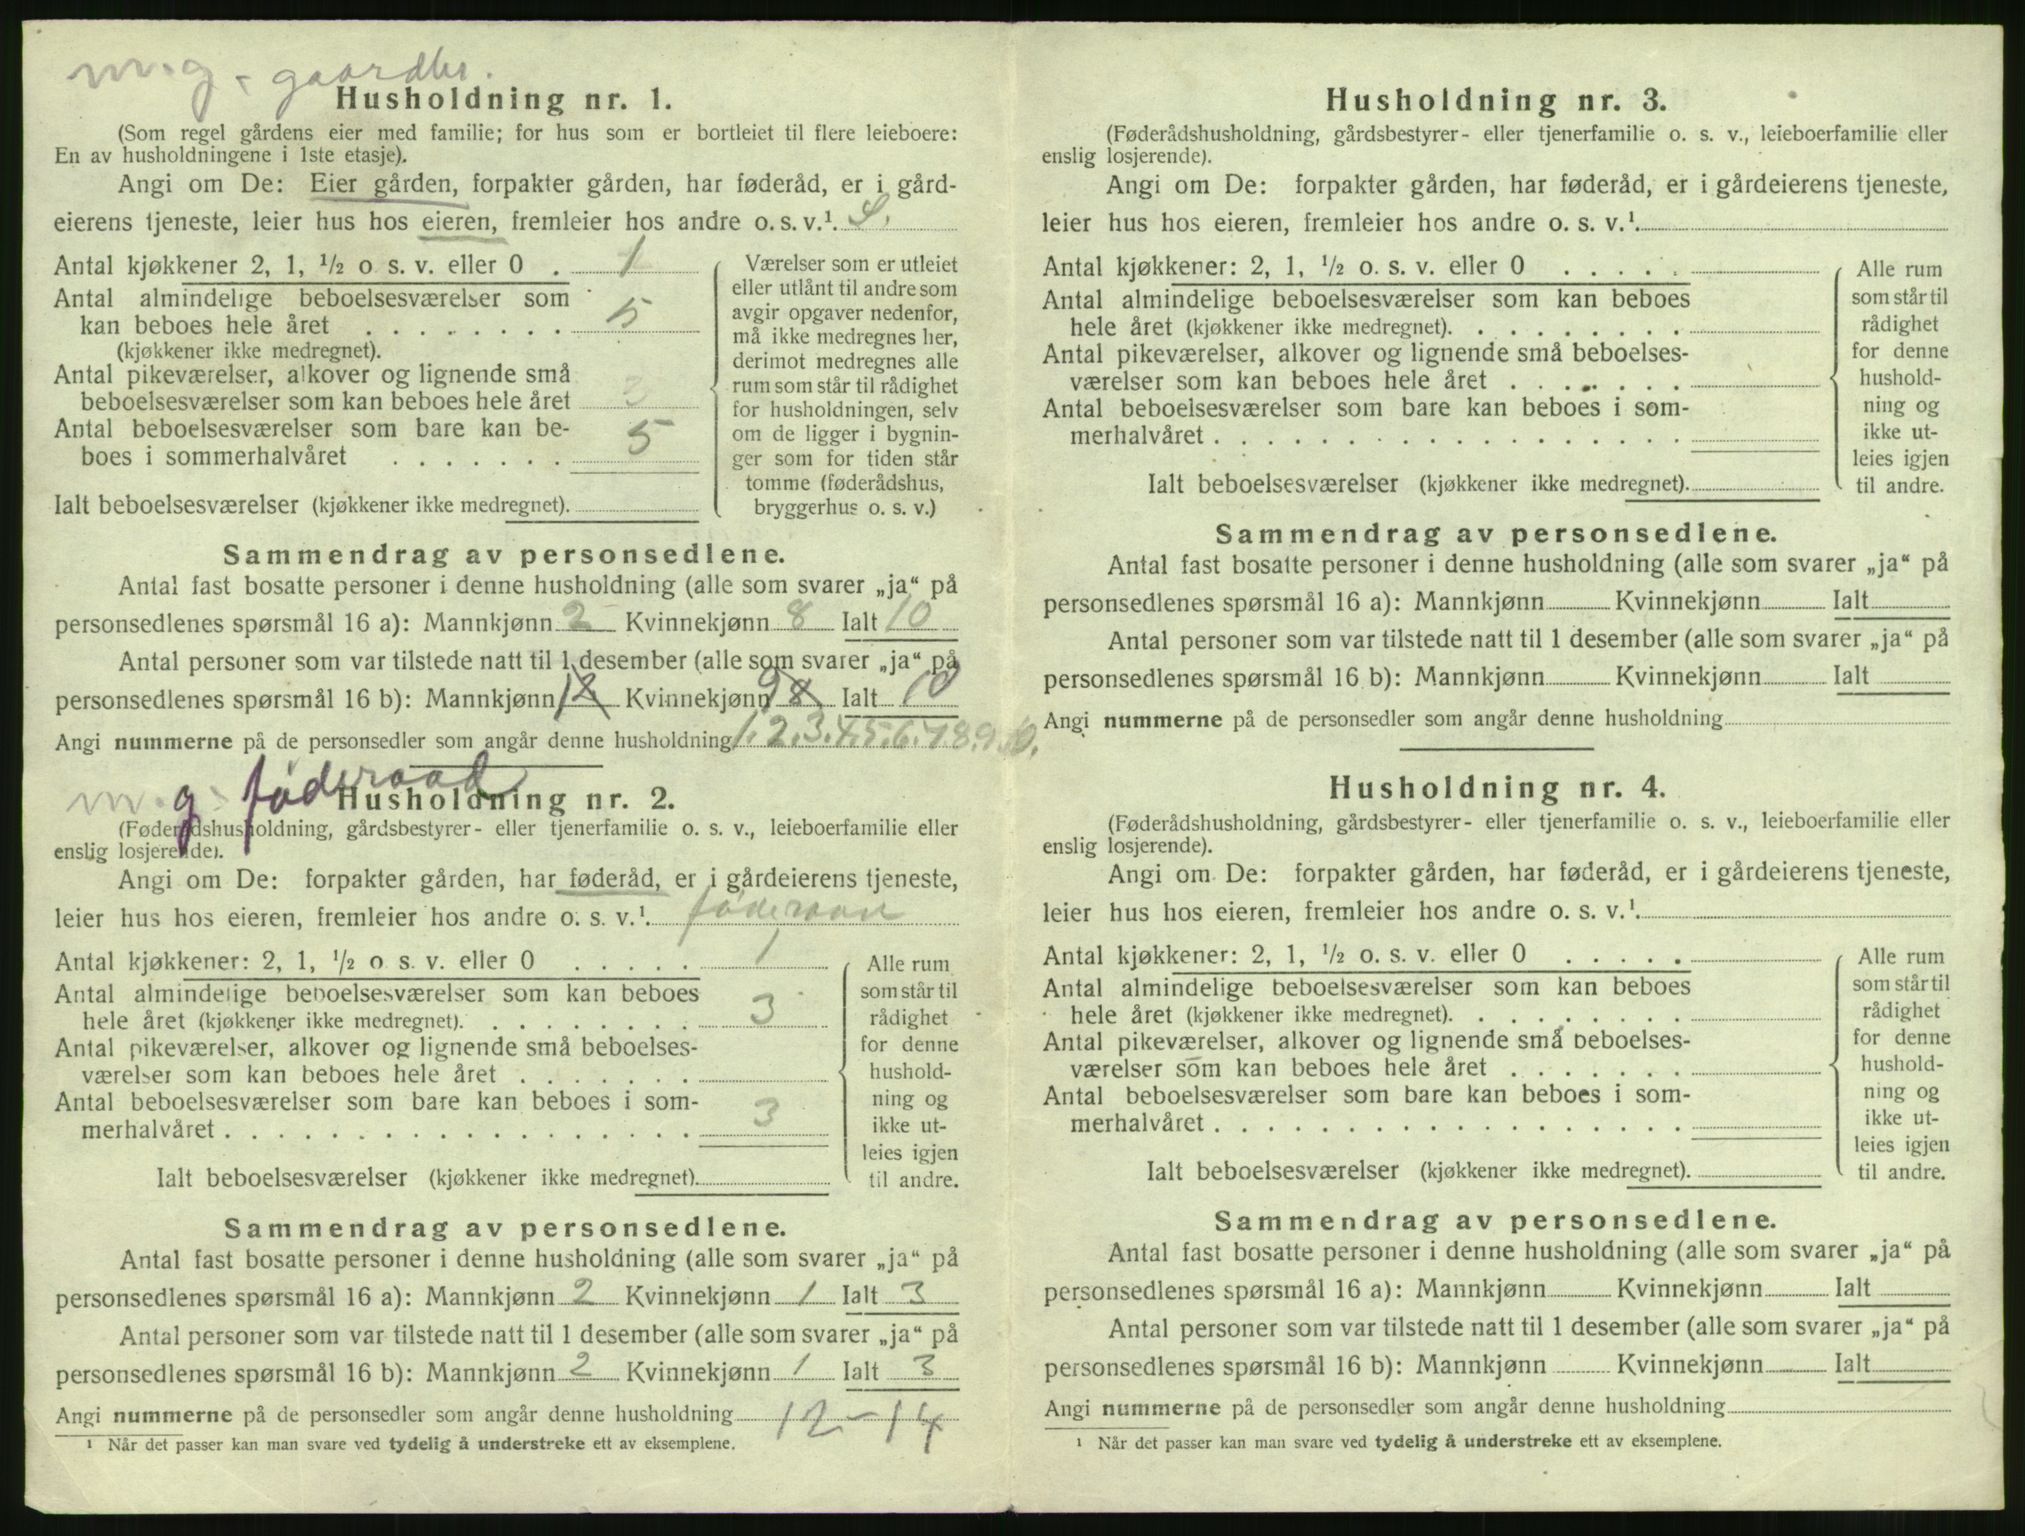 m.g. gaardbr.
Husholdning nr. 1.
(Som regel gårdens eier med familie; for hus som er bortleiet til flere leieboere:
En av husholdningene i 1ste etasje).
Angi om De: Eier gården, forpakter gården, har føderåd, er i gård-
eierens tjeneste, leier hus hos eieren, fremleier hos andre o. s. v.¹.
Antal kjøkkener 2, 1, ½ o s. v. eller 0 . 1
Antal almindelige beboelsesværelser som
kan beboes hele året . . . . . . . . 5
(kjøkkener ikke medregnet).
Antal pikeværelser, alkover og lignende små
beboelsesværelser som kan beboes hele året 3
Antal beboelsesværelser som bare kan be-
boes i sommerhalvåret . . . . . . . 5
Ialt beboelsesværelser (kjøkkener ikke medregnet).
Værelser som er utleiet
eller utlånt til andre som
avgir opgaver nedenfor,
må ikke medregnes her,
derimot medregnes alle
rum som står til rådighet
for husholdningen, selv
om de ligger i bygnin-
ger som for tiden står
tomme (føderådshus,
bryggerhus o. s. v.)
Sammendrag av personsedlene.
Antal fast bosatte personer i denne husholdning (alle som svarer „ja“ på
personsedlenes spørsmål 16 a): Mannkjønn 2 Kvinnekjønn 8 Ialt 10
Antal personer som var tilstede natt til 1 desember (alle som svarer „ja“ på
personsedlenes spørsmål 16 b): Mannkjønn 1 2 Kvinnekjønn 9 8 Ialt 10
Angi nummerne på de personsedler som angår denne husholdning 1.2.3.4.5.6.7.8.9.10.
m.g. føderaad
Husholdning nr. 2.
(Føderådshusholdning, gårdsbestyrer- eller tjenerfamilie o. s. v., leieboerfamilie eller
enslig losjerende).
Angi om De: forpakter gården, har føderåd, er i gårdeierens tjeneste,
leier hus hos eieren, fremleier hos andre o. s. v.¹. føderaad
Antal kjøkkener: 2, 1, ½ o s. v. eller 0 . . . . . 1
Antal almindelige beboelsesværelser som kan beboes
hele året (kjøkkener ikke medregnet). . . . . . . . . 3
Antal pikeværelser, alkover og lignende små beboelses-
værelser som kan beboes hele året . . . . . . .
Antal beboelsesværelser som bare kan beboes i som-
merhalvåret . . . . . . . . . . . . . . . . . . 3
Ialt beboelsesværelser (kjøkkener ikke medregnet).
Alle rum
som står til
rådighet
for denne
hushold-
ning og
ikke ut-
leies igjen
til andre.
Sammendrag av personsedlene.
Antal fast bosatte personer i denne husholdning (alle som svarer „ja“ på
personsedlenes spørsmål 16 a): Mannkjønn 2 Kvinnekjønn 1 Ialt 3
Antal personer som var tilstede natt til 1 desember (alle som svarer „ja“ på
personsedlenes spørsmål 16 b): Mannkjønn 2 Kvinnekjønn 1 Ialt 3
Angi nummerne på de personsedler som angår denne husholdning 12-14
¹ Når det passer kan man svare ved tydelig å understreke ett av eksemplene.
Husholdning nr. 3.
(Føderådshusholdning, gårdsbestyrer- eller tjenerfamilie o. s. v., leieboerfamilie eller
enslig losjerende).
Angi om De: forpakter gården, har føderåd, er i gårdeierens tjeneste,
leier hus hos eieren, fremleier hos andre o. s. v.¹.
Antal kjøkkener: 2, 1, ½ o. s. v. eller 0 . . . . .
Antal almindelige beboelsesværelser som kan beboes
hele året (kjøkkener ikke medregnet). . . . . . . . .
Antal pikeværelser, alkover og lignende små beboelses-
værelser som kan beboes hele året . . . . . . .
Antal beboelsesværelser som bare kan beboes i som-
merhalvåret . . . . . . . . . . . . . . . . . .
Ialt beboelsesværelser (kjøkkener ikke medregnet).
Alle rum
som står til
rådighet
for denne
hushold-
ning og
ikke ut-
leies igjen
til andre.
Sammendrag av personsedlene.
Antal fast bosatte personer i denne husholdning (alle som svarer „ja“ på
personsedlenes spørsmål 16 a): Mannkjønn Kvinnekjønn Ialt
Antal personer som var tilstede natt til 1 desember (alle som svarer „ja“ på
personsedlenes spørsmål 16 b): Mannkjønn Kvinnekjønn Ialt
Angi nummerne på de personsedler som angår denne husholdning
Husholdning nr. 4.
(Føderådshusholdning, gårdsbestyrer- eller tjenerfamilie o. s. v., leieboerfamilie eller
enslig losjerende).
Angi om De: forpakter gården, har føderåd, er i gårdeierens tjeneste,
leier hus hos eieren, fremleier hos andre o. s. v.¹.
Antal kjøkkener: 2, 1, ½ o. s. v. eller 0 . . . . .
Antal almindelige beboelsesværelser som kan beboes
hele året (kjøkkener ikke medregnet). . . . . . . . .
Antal pikeværelser, alkover og lignende små beboelses-
værelser som kan beboes hele året . . . . . . .
Antal beboelsesværelser som bare kan beboes i som-
merhalvåret . . . . . . . . . . . . . . . . . .
Ialt beboelsesværelser (kjøkkener ikke medregnet).
Alle rum
som står til
rådighet
for denne
hushold-
ning og
ikke ut-
leies igjen
til andre.
Sammendrag av personsedlene.
Antal fast bosatte personer i denne husholdning (alle som svarer „ja“ på
personsedlenes spørsmål 16 a): Mannkjønn Kvinnekjønn Ialt
Antal personer som var tilstede natt til 1 desember (alle som svarer „ja“ på
personsedlenes spørsmål 16 b): Mannkjønn Kvinnekjønn Ialt
Angi nummerne på de personsedler som angår denne husholdning
¹ Når det passer kan man svare ved tydelig å understreke ett av eksemplene.